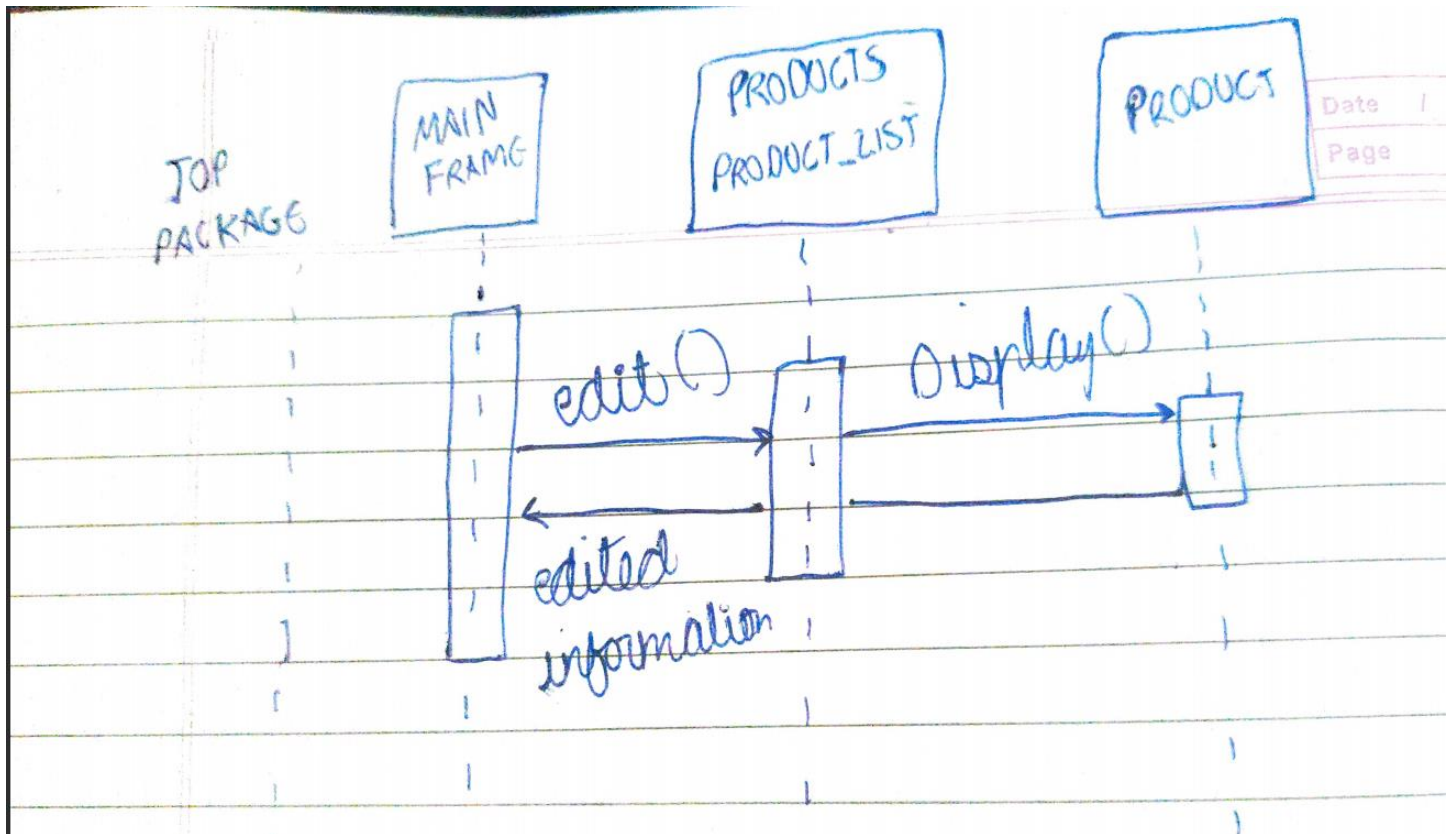 TOP
PACKAGE
MAIN
FRAME
PRODUCTS
PRODUCT_LIST
PRODUCT
Date /
Page
edit()
Display()
edited
information